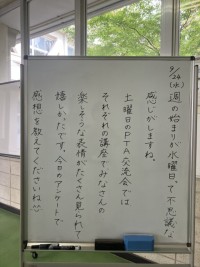 9/24(水)
週の始まりが水曜日って不思議な
感じがしますね。
土曜日のPTA交流会では
それぞれの講座でみなさんの
楽しそうな表情がたくさん見られて
嬉しかったです。今日のアンケートで
感想を教えてくださいね^^